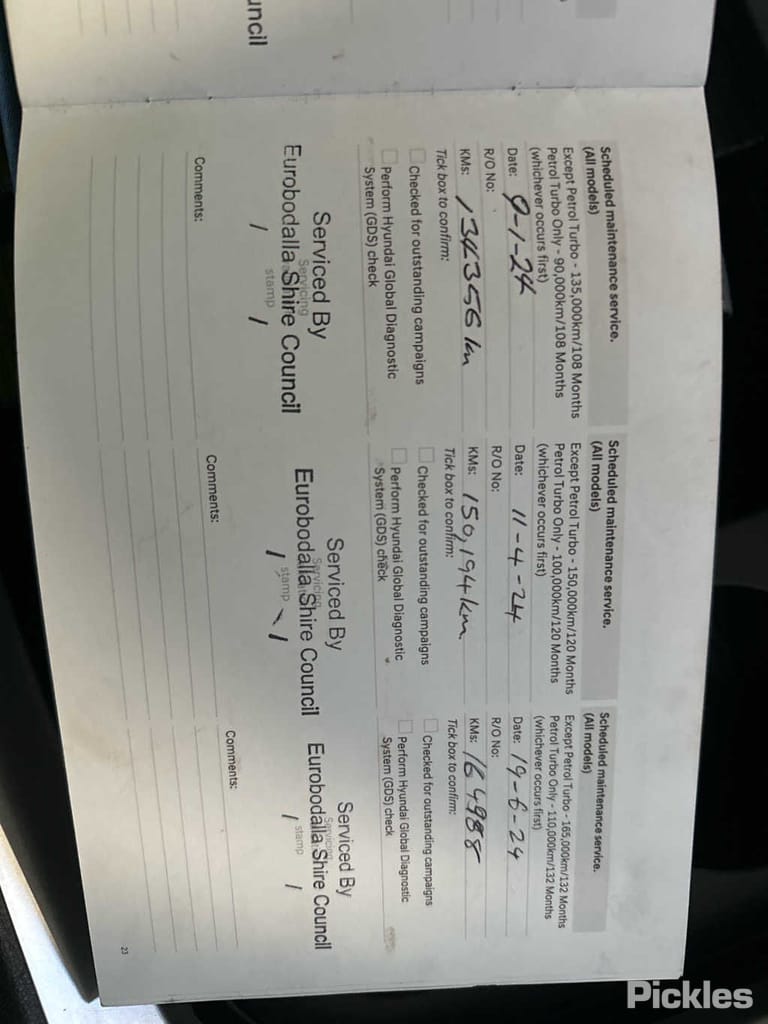 uncil
Scheduled maintenance service.
(All models)
Except Petrol Turbo - 135,000km/108 Months
Petrol Turbo Only - 90,000km/108 Months
(whichever occurs first)
Date: 9-1-24
R/O No:
KMs: 134356 km
Tick box to confirm:
Checked for outstanding campaigns
Perform Hyundai Global Diagnostic
System (GDS) check
Serviced By
Servicing
Eurobodalla Shire Council
stamp
/ /
Comments:
Scheduled maintenance service.
(All models)
Except Petrol Turbo - 150,000km/120 Months
Petrol Turbo Only - 100,000km/120 Months
(whichever occurs first)
Date: 11-4-24
R/O No:
KMs: 150,194km
Tick box to confirm:
Checked for outstanding campaigns
Perform Hyundai Global Diagnostic
System (GDS) check
Serviced By
Servicing
Eurobodalla Shire Council
stamp
/ /
Comments:
Scheduled maintenance service.
(All models)
Except Petrol Turbo - 165,000km/132 Months
Petrol Turbo Only - 110,000km/132 Months
(whichever occurs first)
Date: 19-6-24
R/O No:
KMs: 164988
Tick box to confirm:
Checked for outstanding campaigns
Perform Hyundai Global Diagnostic
System (GDS) check
Serviced By
Servicing
Eurobodalla Shire Council
stamp
/ /
Comments:
23
Pickles